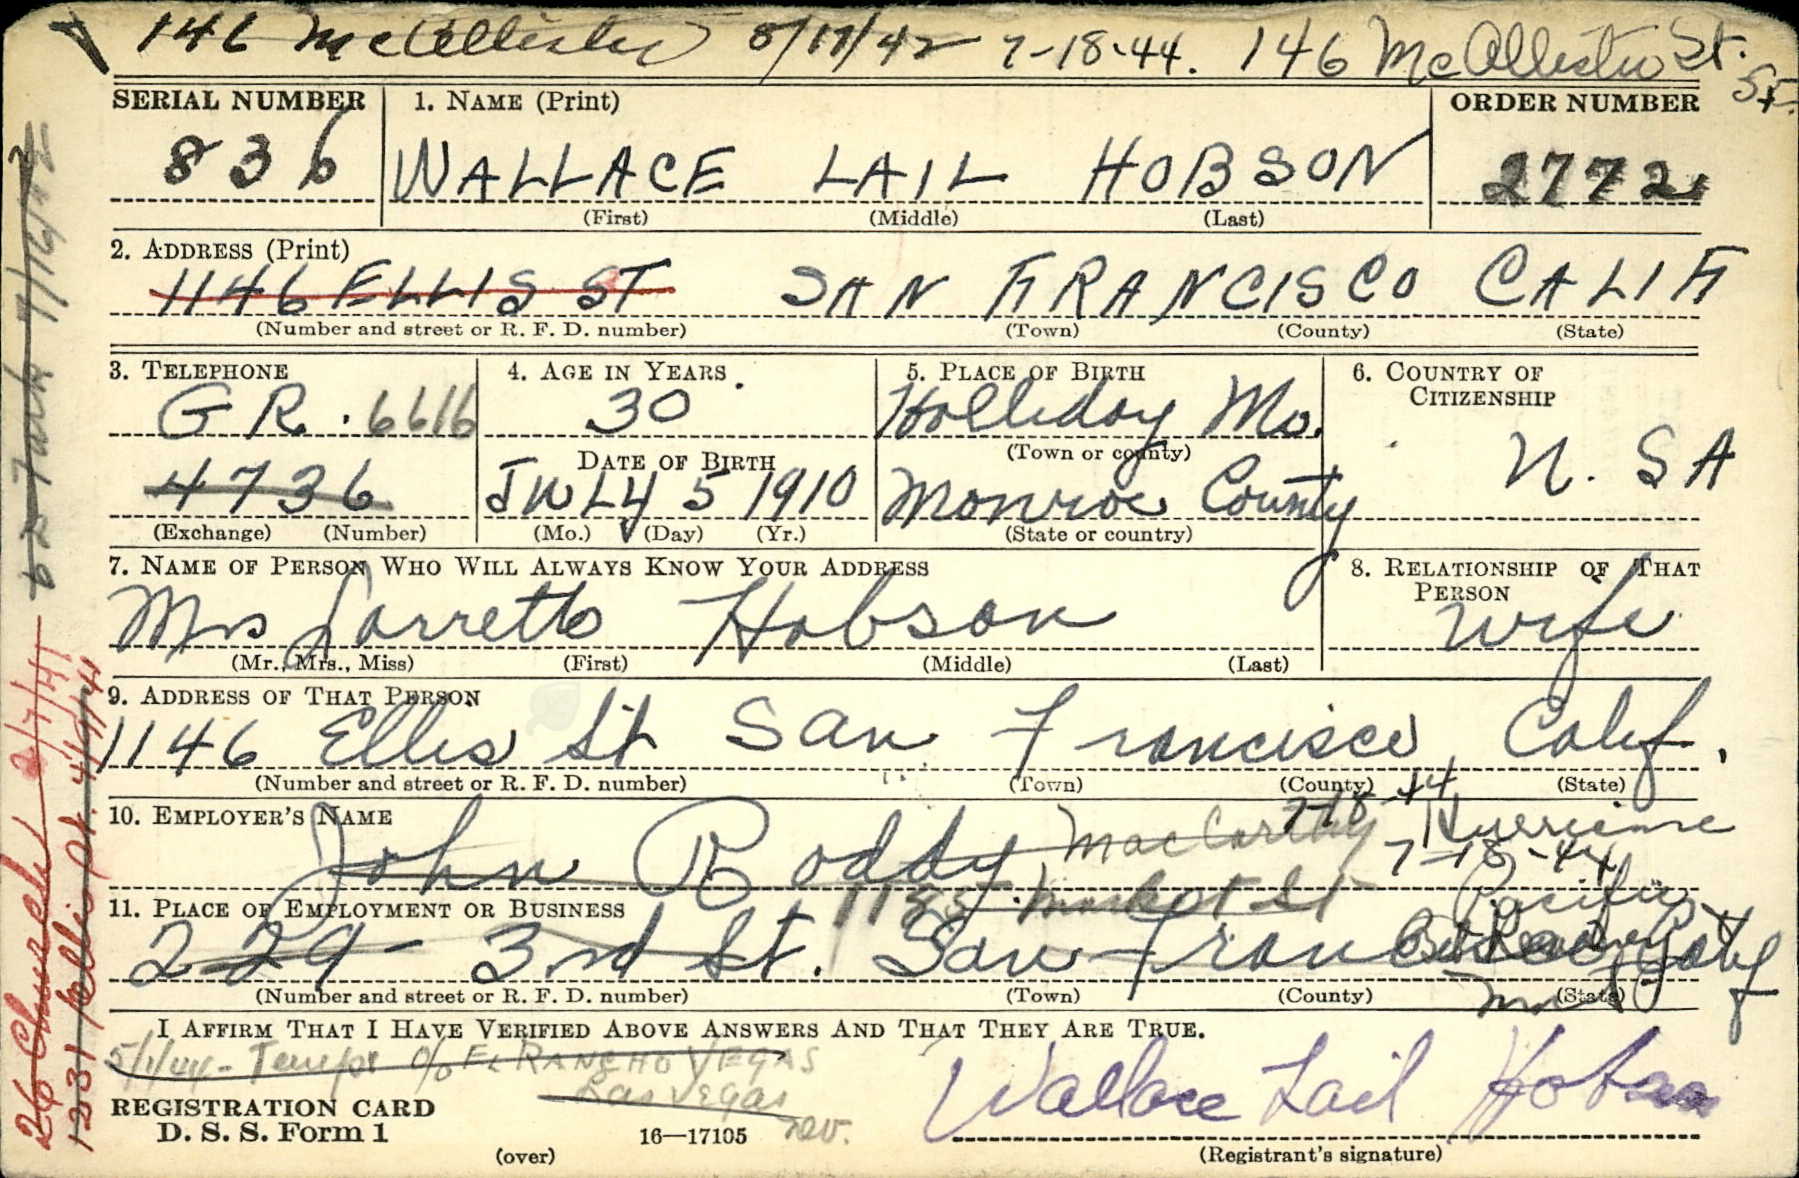 146 McAllister 8/17/42 7-18-44. 146 McAllister St. S.F.
SERIAL NUMBER 1. NAME (Print) ORDER NUMBER
836 WALLACE LAIL HOBSON 2772
(First) (Middle) (Last)
2. ADDRESS (Print)
1146 ELLIS ST SAN FRANCISCO CALIF
(Number and street or R. F. D. number) (Town) (County) (State)
3. TELEPHONE 4. AGE IN YEARS 5. PLACE OF BIRTH 6. COUNTRY OF CITIZENSHIP
GR. 6616 30 Holliday Mo.
DATE OF BIRTH (Town or county) U. S A
4736 JULY 5 1910 Monroe County
(Exchange) (Number) (Mo.) (Day) (Yr.) (State or country)
7. NAME OF PERSON WHO WILL ALWAYS KNOW YOUR ADDRESS 8. RELATIONSHIP OF THAT PERSON
Mrs Lorretto Hobson wife
(Mr., Mrs., Miss) (First) (Middle) (Last)
9. ADDRESS OF THAT PERSON
1146 Ellis St San Francisco Calif.
(Number and street or R. F. D. number) (Town) (County) (State)
10. EMPLOYER'S NAME 7-18-44
John Roddy MacCarthy Hurricane
7-18-44
11. PLACE OF EMPLOYMENT OR BUSINESS 1185 Market St Pacific
229-3rd St. San Francisco Calif
(Number and street or R. F. D. number) (Town) (County) (State)
I AFFIRM THAT I HAVE VERIFIED ABOVE ANSWERS AND THAT THEY ARE TRUE.
5/1/44 - Temp: c/o EL RANCHO VEGAS
Las Vegas
Nev.
Wallace Lail Hobson
REGISTRATION CARD
D. S. S. Form 1 16—17105
(over) (Registrant's signature)
62 Turk 7/16/42
26 Church 2/7/41
1231 Ellis Pt. 4/9/41